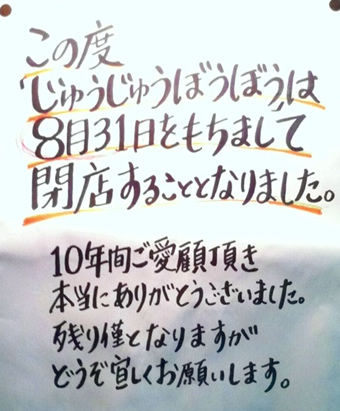 この度
「じゅうじゅうぼうぼう」は
8月31日をもちまして
閉店することとなりました。
10年間ご愛顧頂き
本当にありがとうございました。
残り僅となりますが
どうぞ宜しくお願いします。